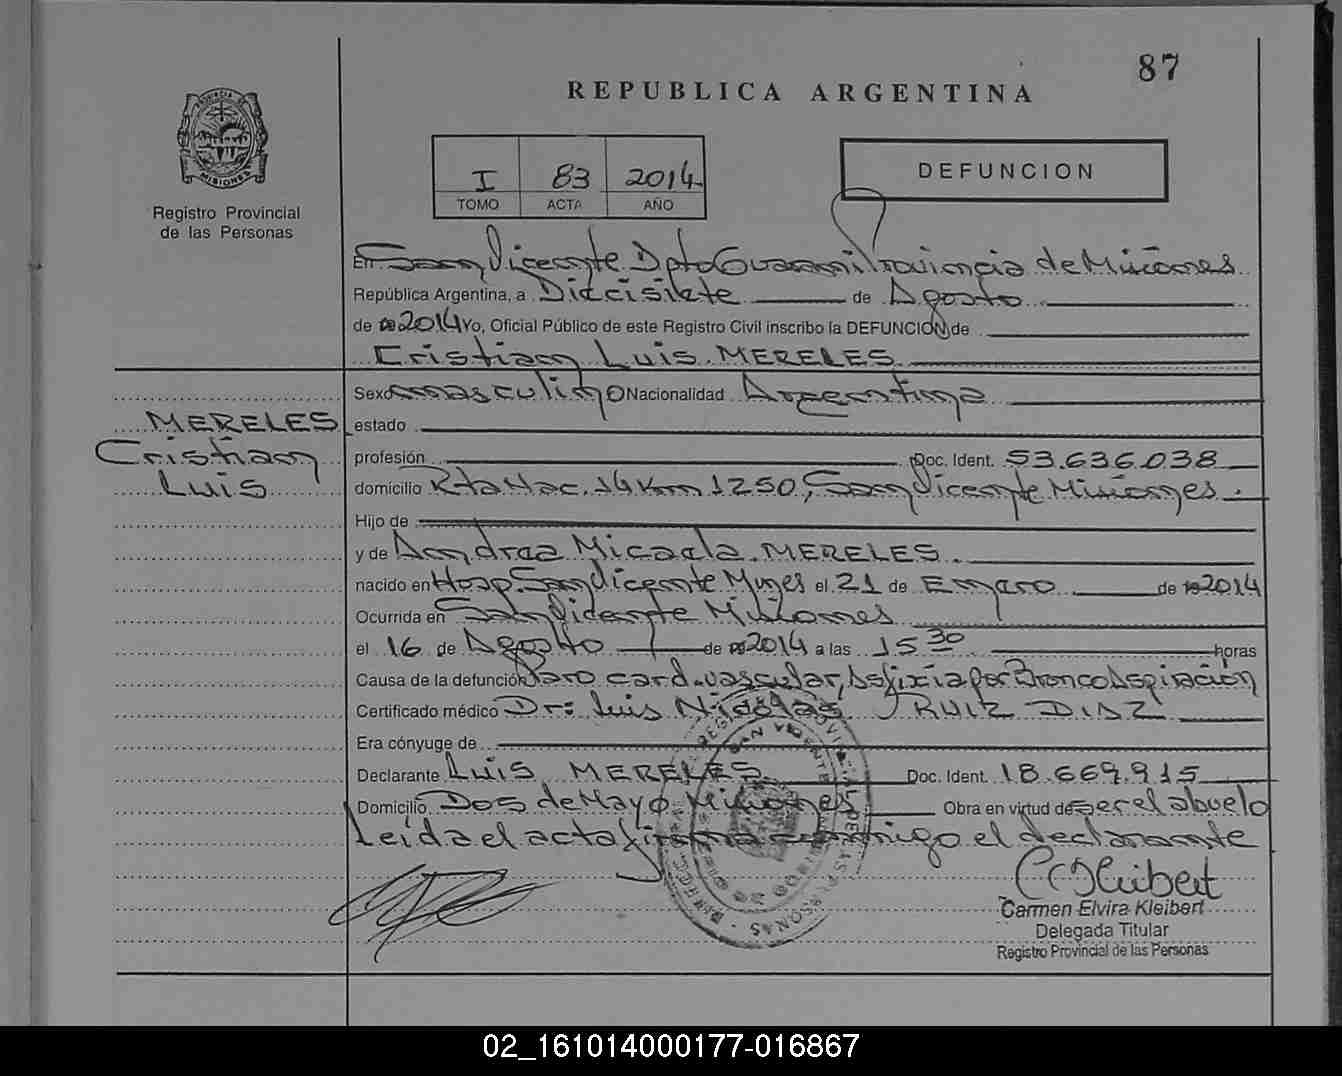 87
REPUBLICA ARGENTINA
PROVINCIA DE
MISIONES
Registro Provincial
de las Personas
I 83 2014
TOMO ACTA AÑO
DEFUNCION
En San Vicente Dpto Guarani Provincia de Misiones
República Argentina, a Diecisiete de Agosto
de 2014 Yo, Oficial Público de este Registro Civil inscribo la DEFUNCION de
Cristian Luis MERELES
MERELES
Cristian
Luis
Sexo masculino Nacionalidad Argentina
estado
profesión Doc. Ident. 53.636.038
domicilio Rta Nac. 14 Km 1250, San Vicente Misiones.
Hijo de
y de Andrea Micaela MERELES
nacido en Hosp. San Vicente Mnes el 21 de Enero de 2014
Ocurrida en San Vicente Misiones
el 16 de Agosto de 2014 a las 15 30 horas
Causa de la defunción Paro cardiovascular, Asfixia por Bronco Aspiración
Certificado médico Dr: Luis Nicolas RUIZ DIAZ
Era cónyuge de
Declarante Luis MERELES Doc. Ident. 18.669.915
Domicilio Dos de Mayo Misiones Obra en virtud de ser el abuelo
Leida el acta firma conmigo el declarante
SAN VICENTE
Carmen Elvira Kleibert
Delegada Titular
Registro Provincial de las Personas
02_161014000177-016867